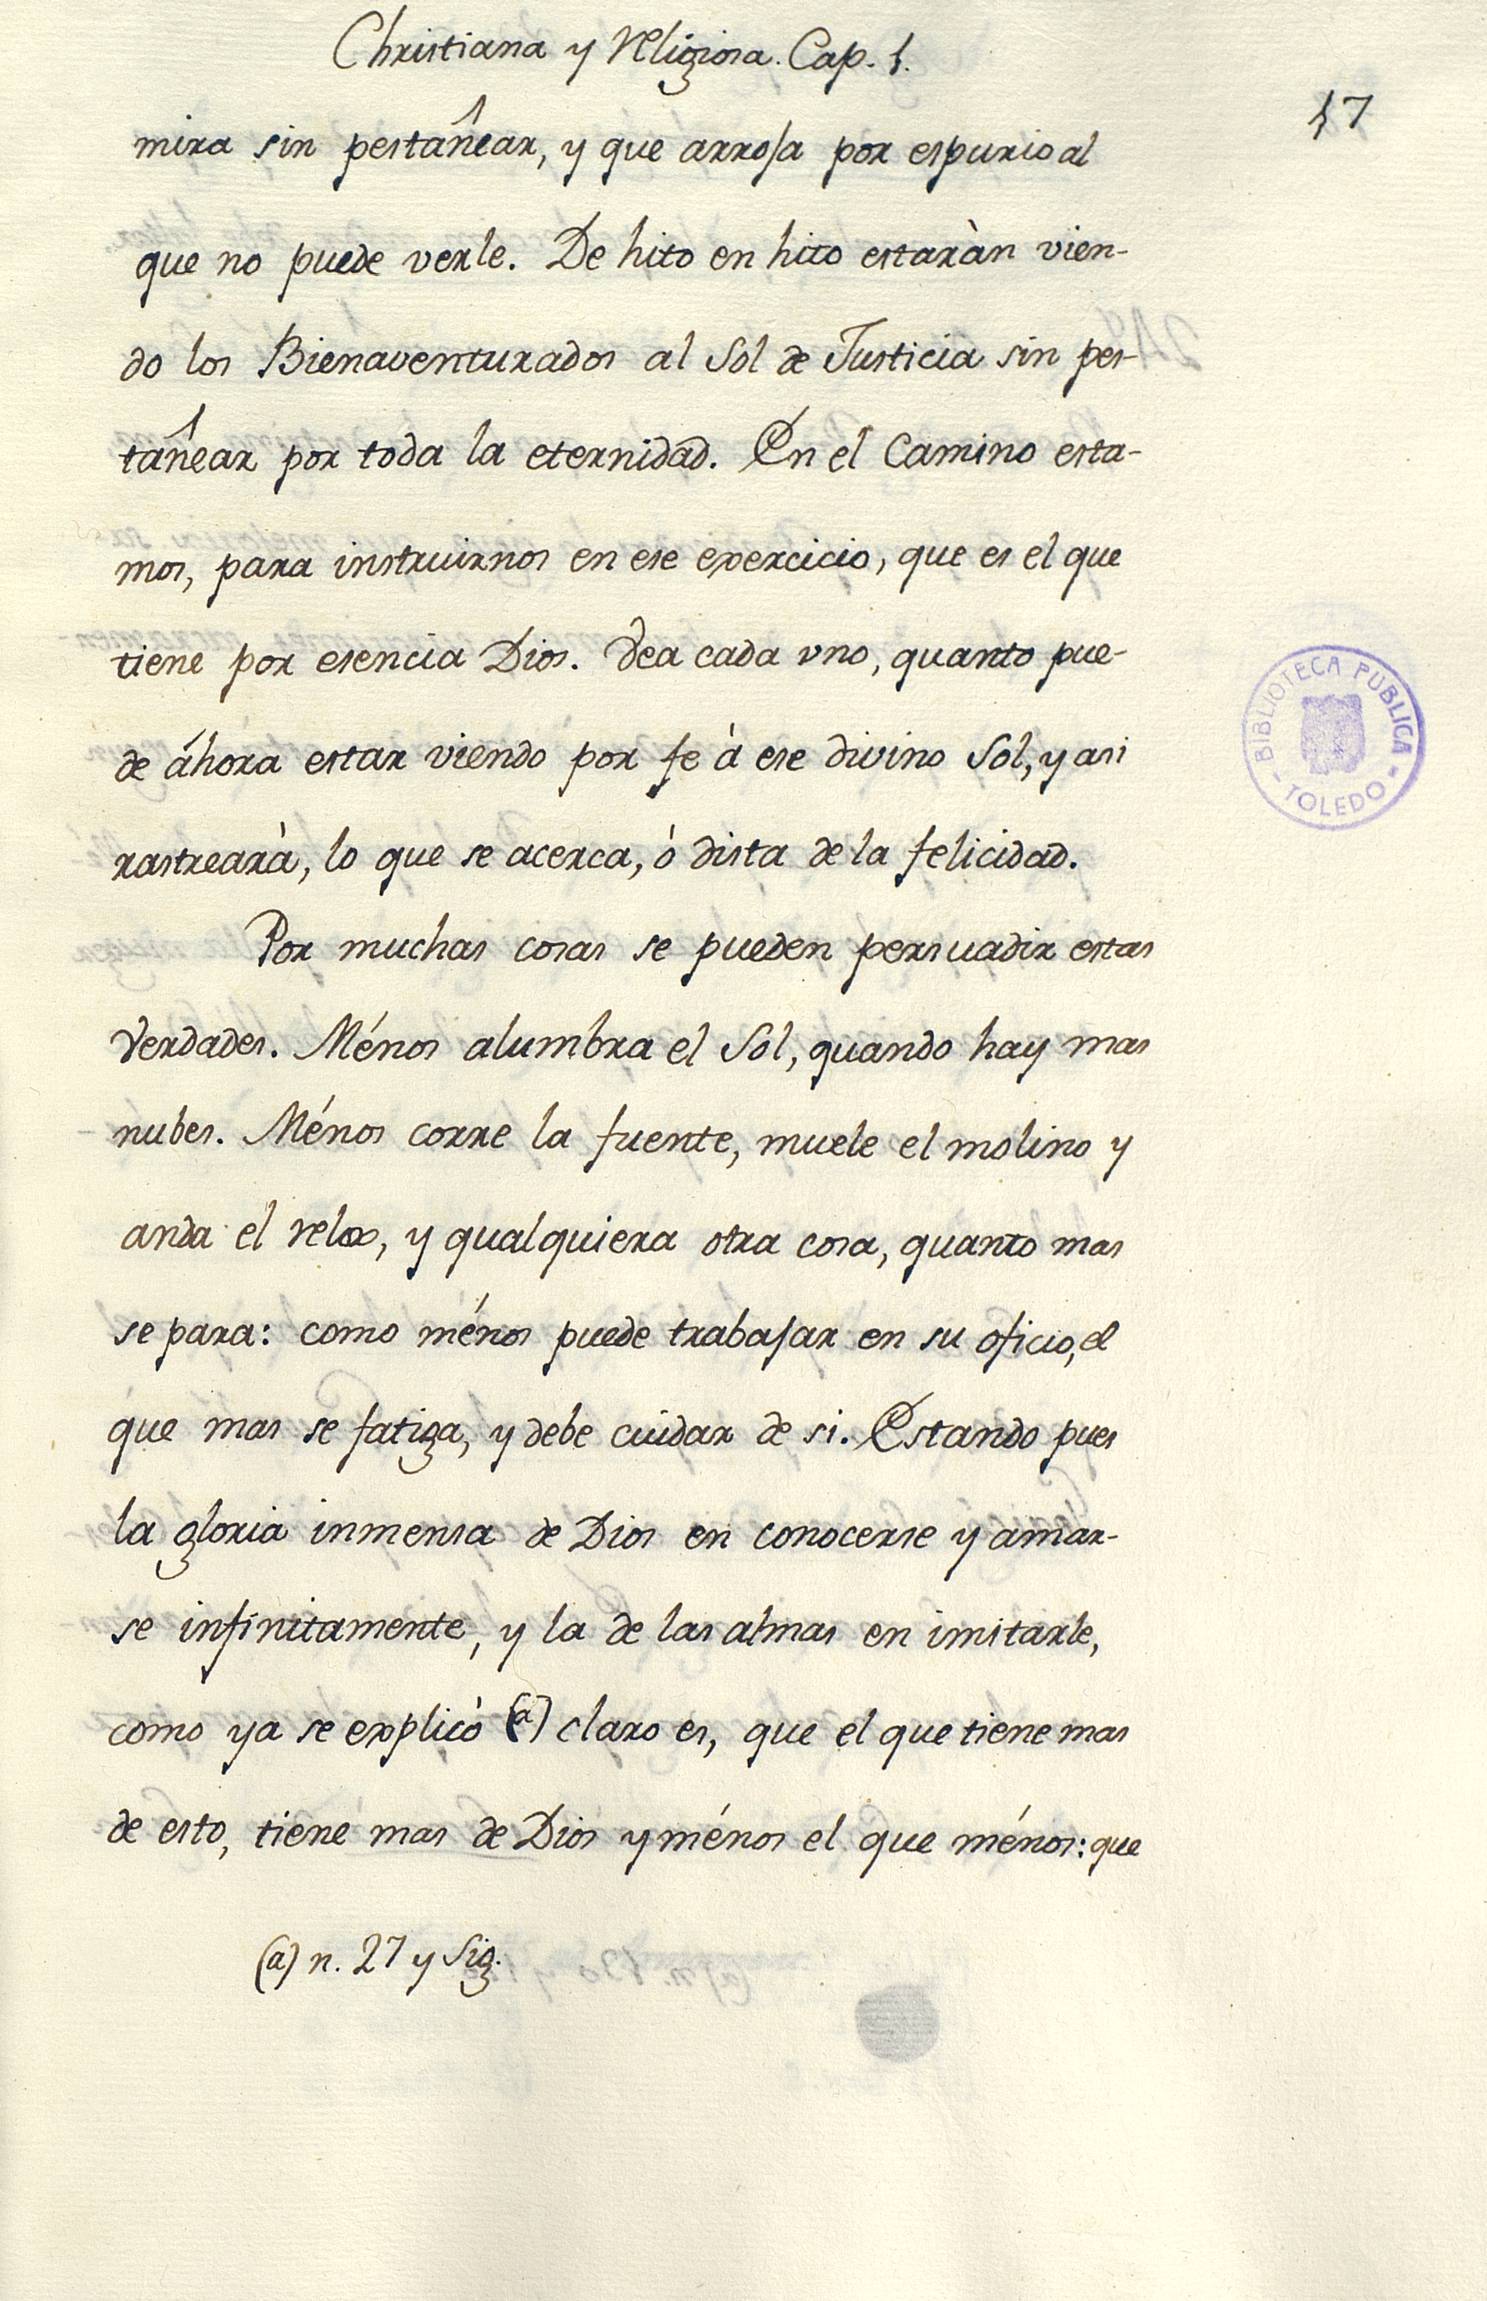 Christiana y Religiosa. Cap. 1.
17
mira sin pestañear, y que arroja por espurio al
que no puede verle. De hito en hito estaràn vien-
do los Bienaventurados al Sol de Justicia sin pes-
tañear por toda la eternidad. En el Camino esta-
mos, para instruirnos en ese exercicio, que es el que
tiene por esencia Dios. Vea cada vno, quanto pue-
de áhora estar viendo por fe à ese divino Sol, y asi
rastrearà, lo que se acerca, ó dista de la felicidad.
Por muchas cosas se pueden persuadir estas
Verdades. Ménos alumbra el Sol, quando hay mas
nubes. Ménos corre la fuente, muele el molino y
anda el relox, y qualquiera otra cosa, quanto mas
se para: como ménos puede trabajar en su oficio, el
que mas se fatiga, y debe cuidar de si. Estando pues
la gloria inmensa de Dios en conocerse y amar-
se infinitamente, y la de las almas en imitarle,
como ya se explicò (a) claro es, que el que tiene mas
de esto, tiene mas de Dios y ménos el que ménos: que
(a) n. 27 y Sig.
BIBLIOTECA PUBLICA
- TOLEDO -